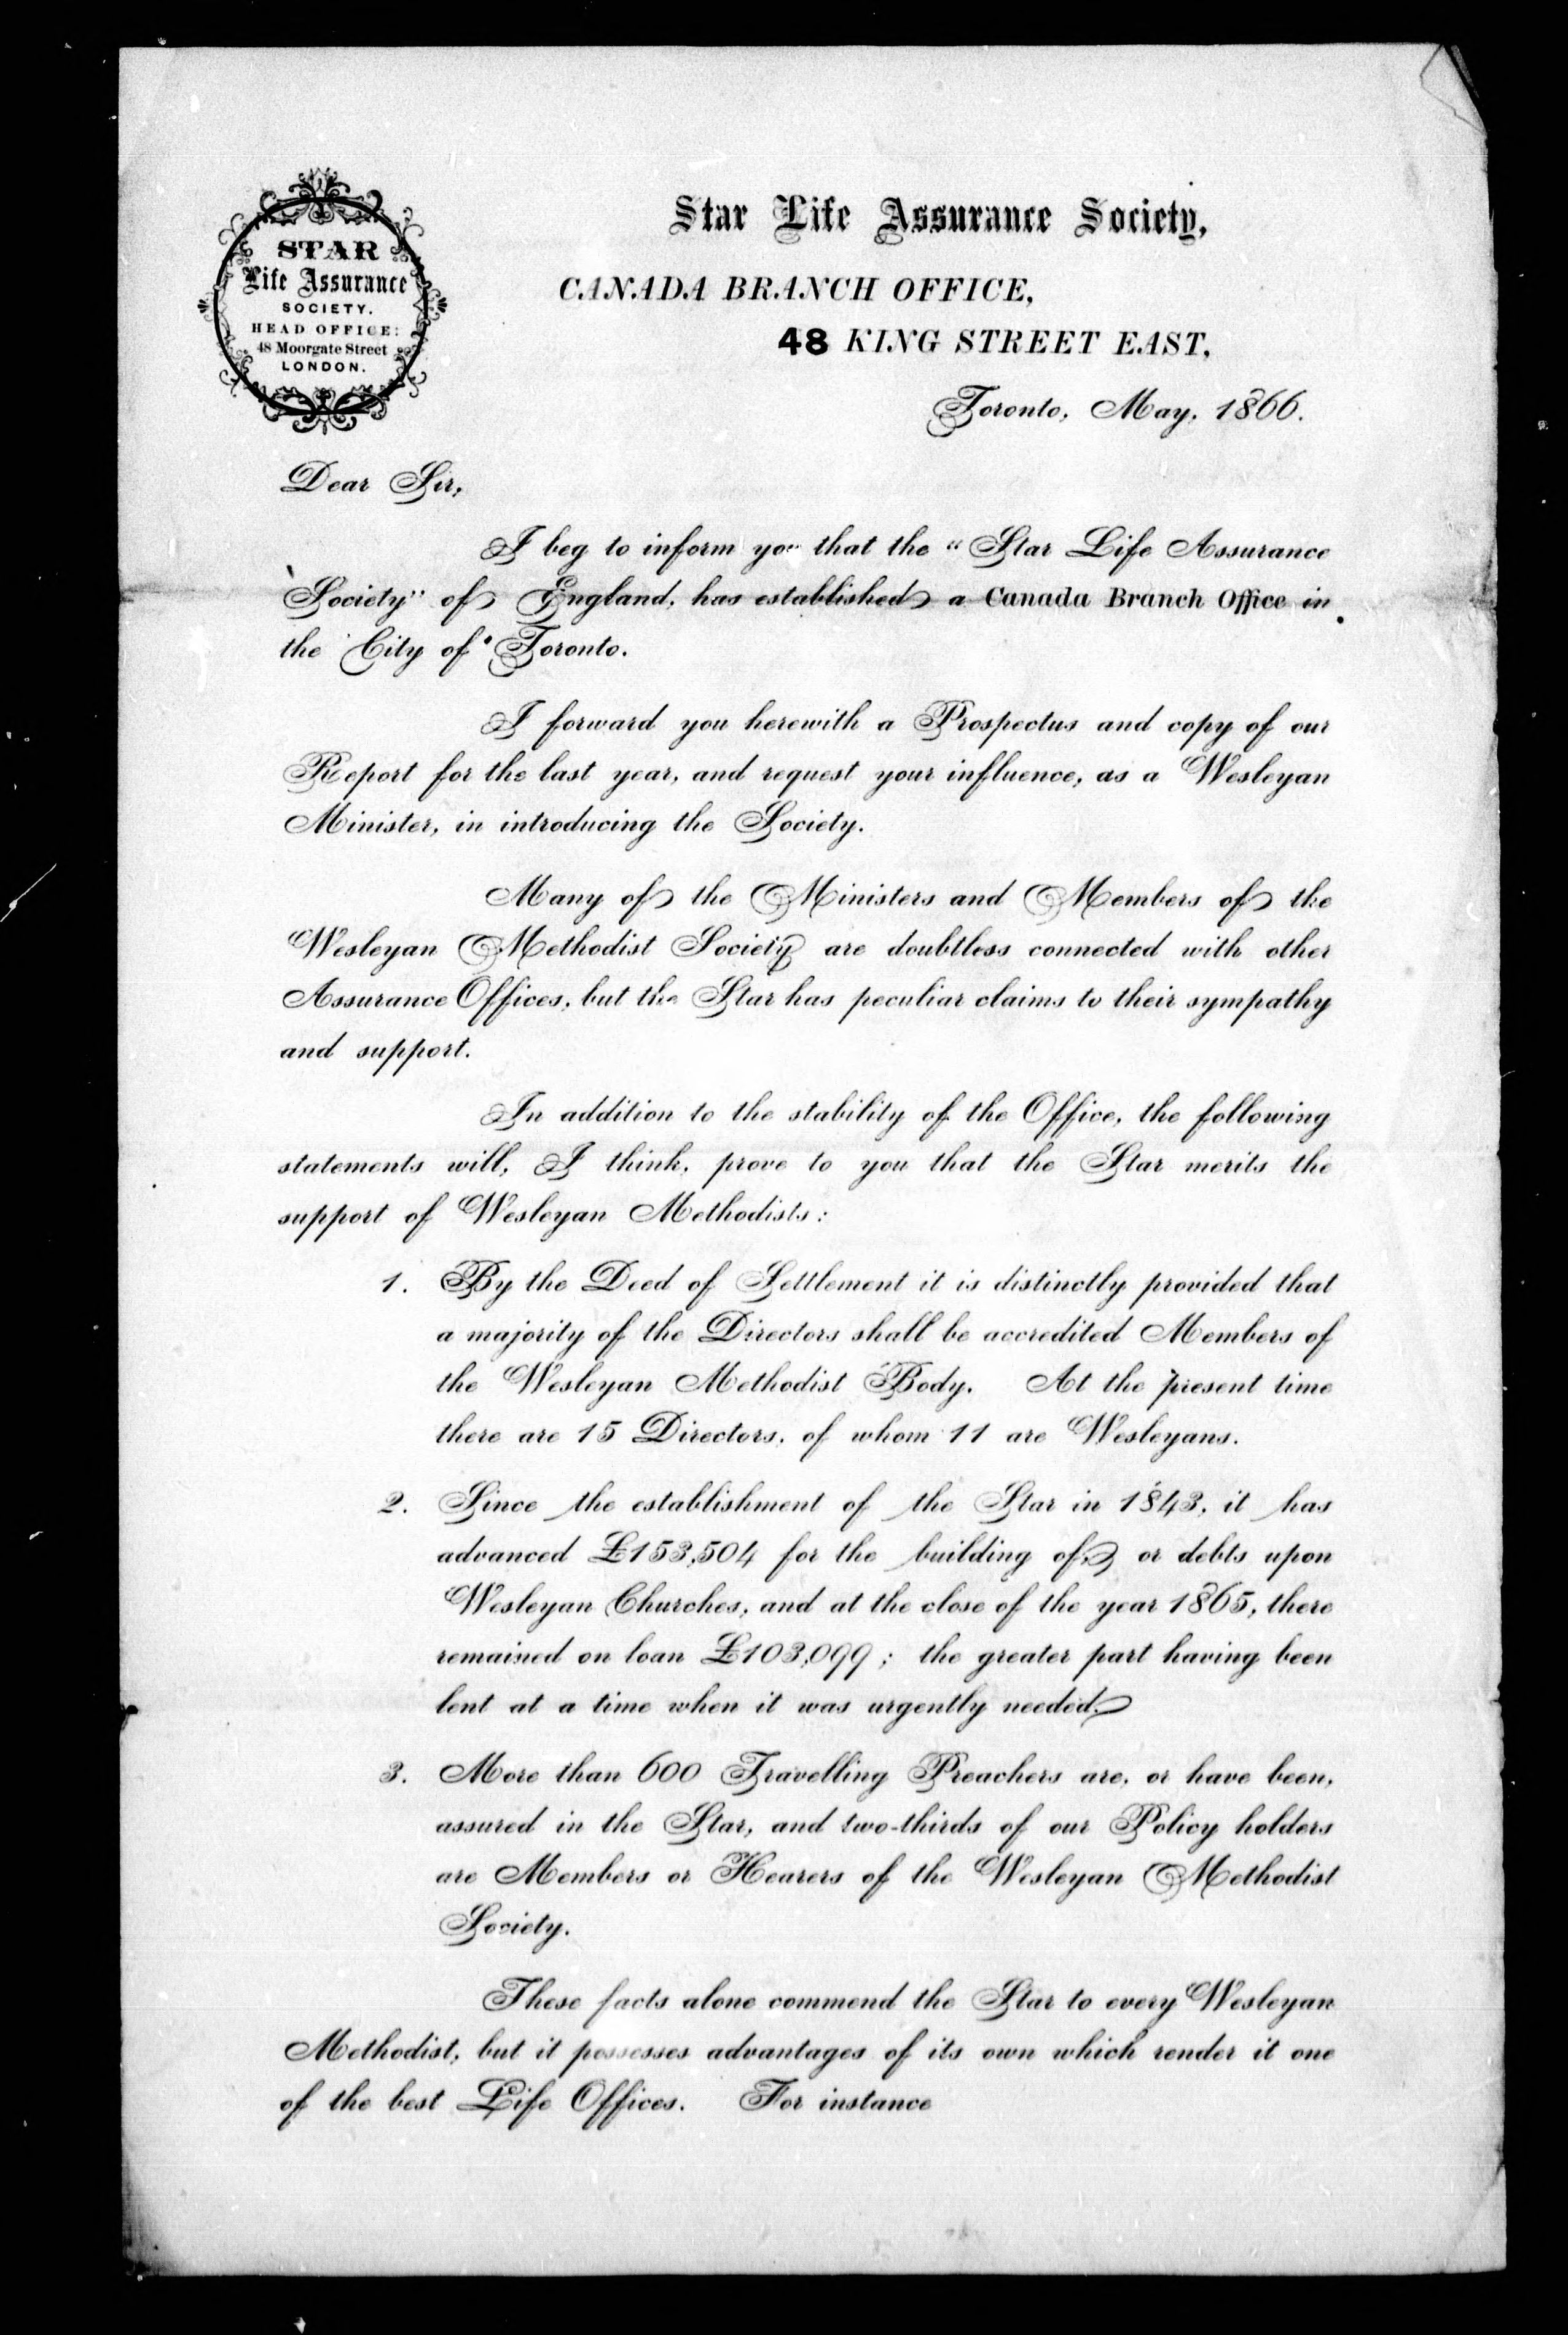 STAR
Life Assurance
SOCIETY.
HEAD OFFICE:
48 Moorgate Street
LONDON.
Star Life Assurance Society,
CANADA BRANCH OFFICE,
48 KING STREET EAST,
Toronto, May, 1866.
Dear Sir,
I beg to inform you that the "Star Life Assurance
Society" of England, has established a Canada Branch Office in
the City of Toronto.
I forward you herewith a Prospectus and copy of our
Report for the last year, and request your influence, as a Wesleyan
Minister, in introducing the Society.
Many of the Ministers and Members of the
Wesleyan Methodist Society are doubtless connected with other
Assurance Offices, but the Star has peculiar claims to their sympathy
and support.
In addition to the stability of the Office, the following
statements will, I think, prove to you that the Star merits the
support of Wesleyan Methodists:
1. By the Deed of Settlement it is distinctly provided that
a majority of the Directors shall be accredited Members of
the Wesleyan Methodist Body. At the present time
there are 15 Directors, of whom 11 are Wesleyans.
2. Since the establishment of the Star in 1843, it has
advanced £153,504 for the building of, or debts upon
Wesleyan Churches, and at the close of the year 1865, there
remained on loan £103,099; the greater part having been
lent at a time when it was urgently needed.
3. More than 600 Travelling Preachers are, or have been,
assured in the Star, and two-thirds of our Policy holders
are Members or Hearers of the Wesleyan Methodist
Society.
These facts alone commend the Star to every Wesleyan
Methodist, but it possesses advantages of its own which render it one
of the best Life Offices. For instance